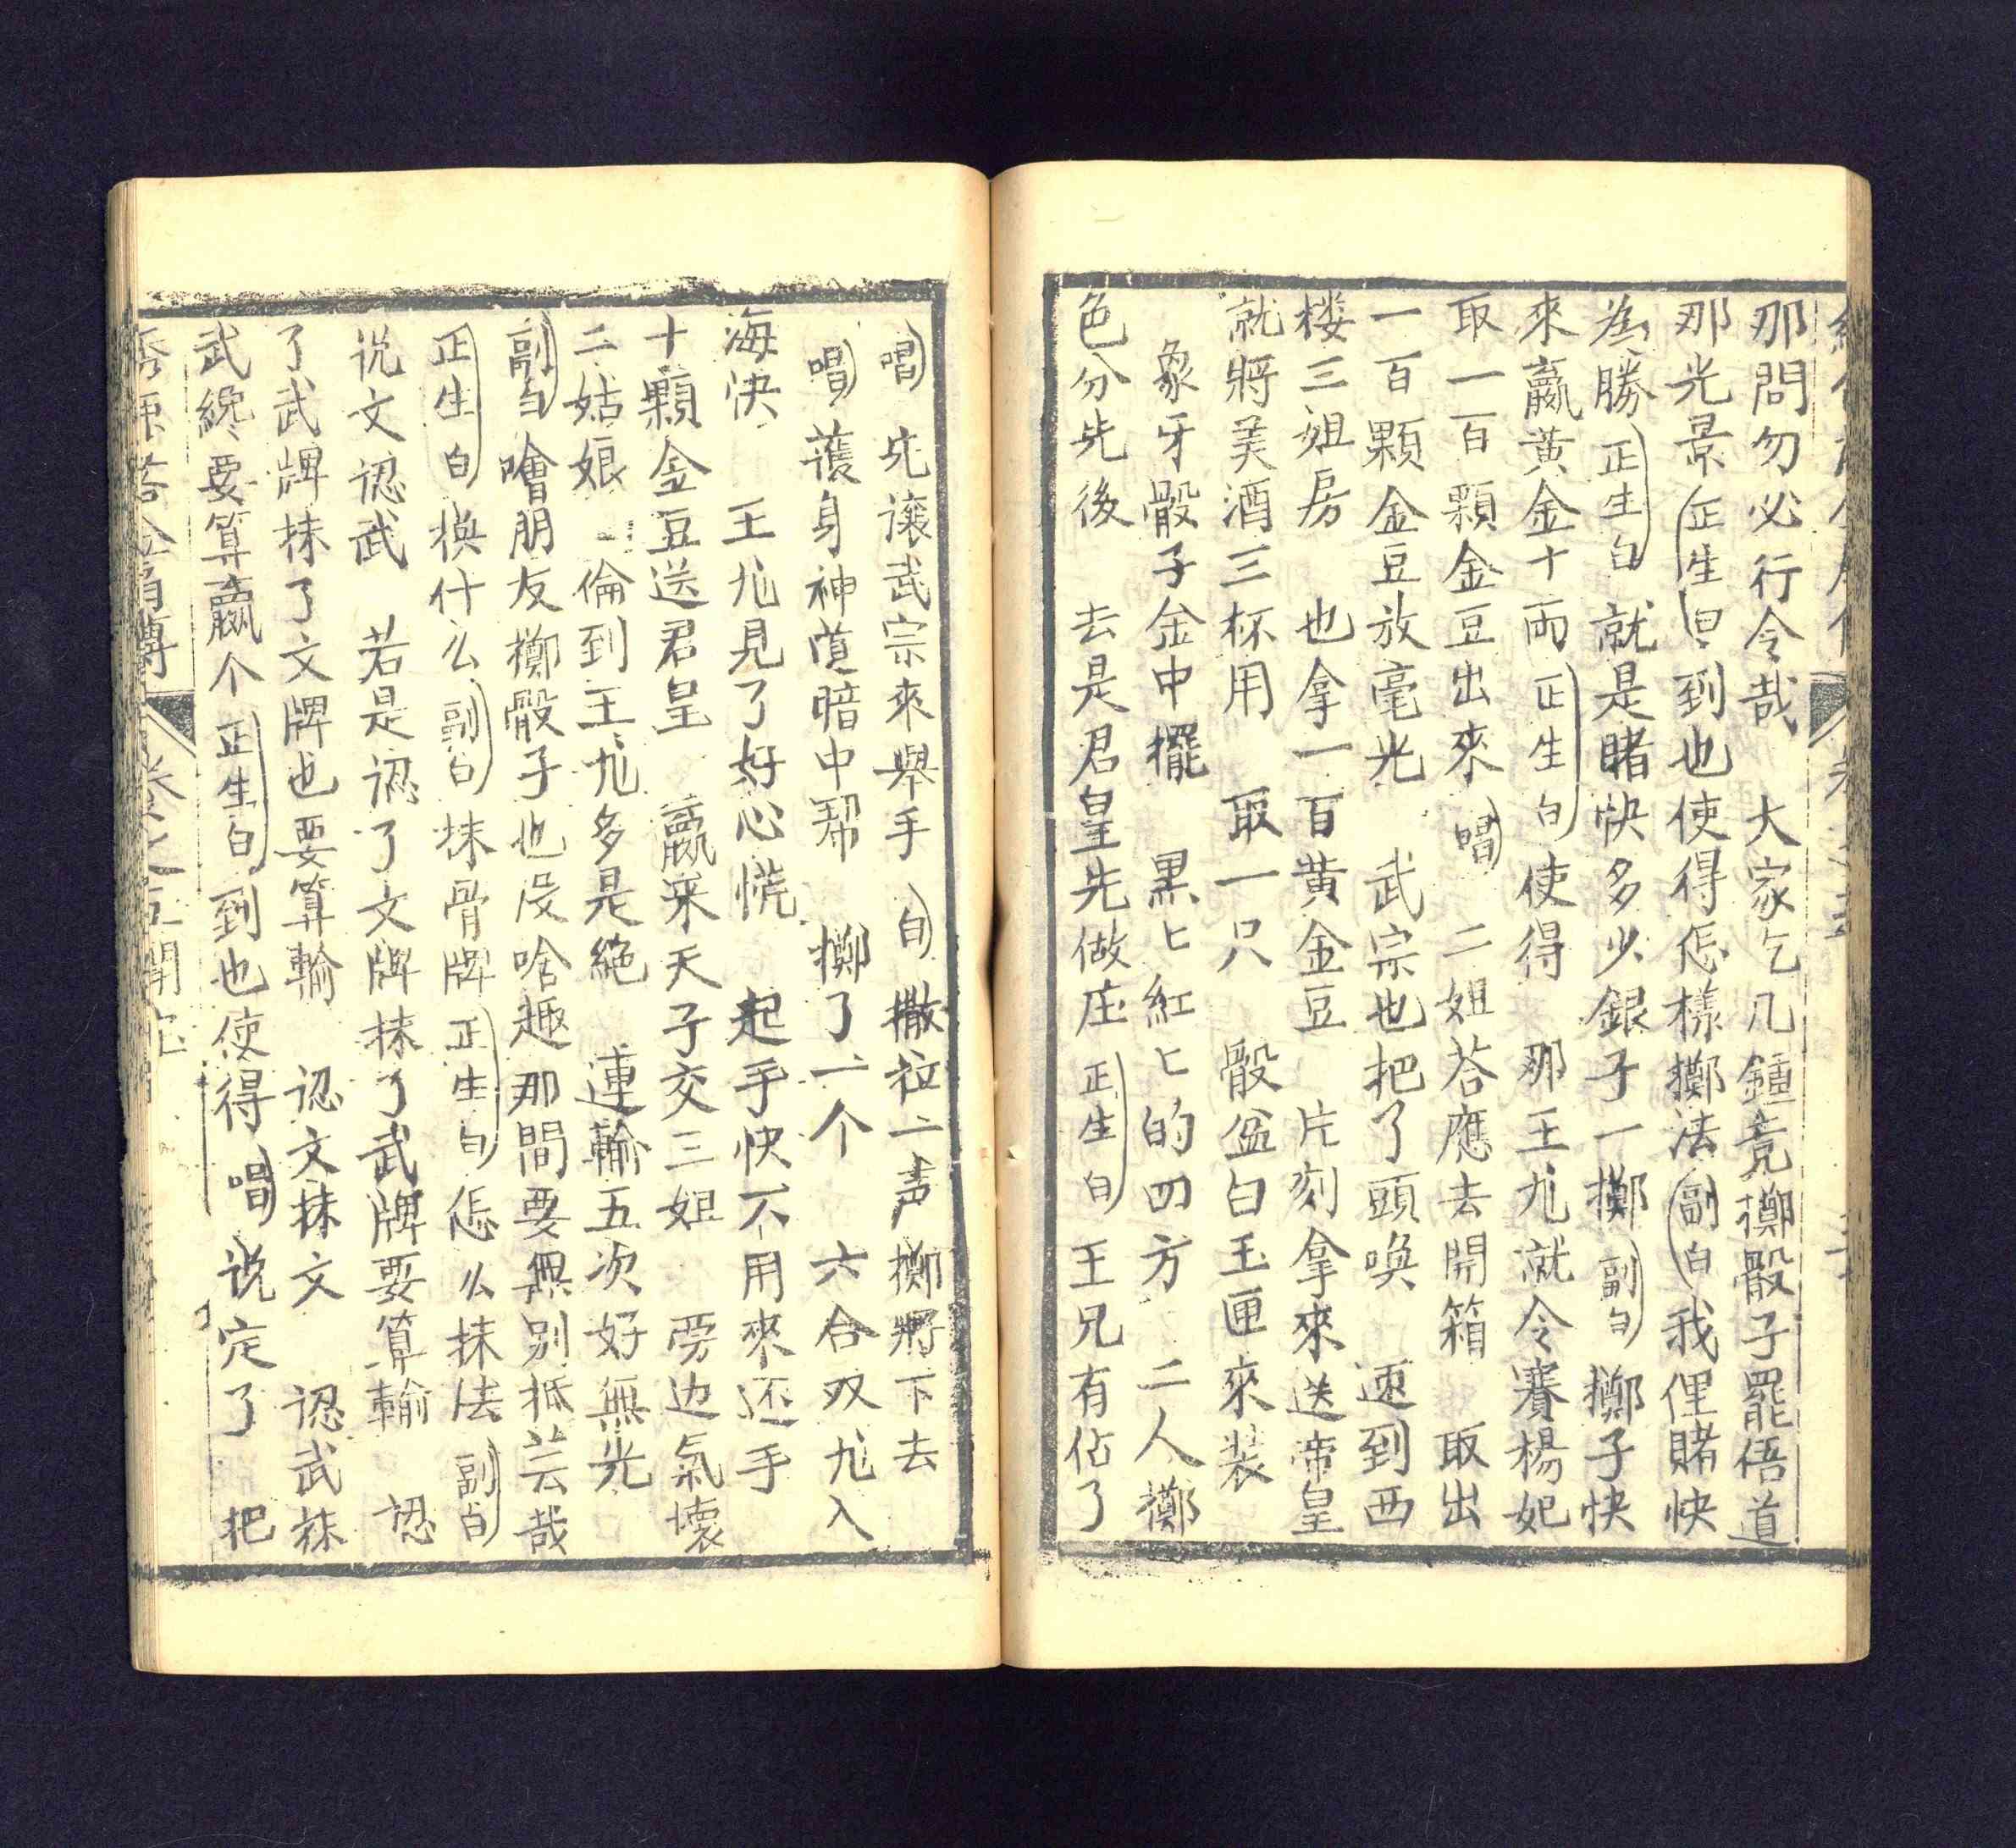 那問勿必行令哉　大家乞几鍾竟擲骰子罷㑄道
那光景(正生白)到也使得怎樣擲法(副白)我俚賭快
為勝(正生白)就是睹快多少銀子一擲(副白)擲子快
來贏黃金十両(正生白)使得　那王九就令賽楊妃
取一百顆金豆出來(唱)二姐荅應去開箱　取出
一百顆金豆放毫光　武宗也把了頭喚　速到西
楼三姐房　也拿一百黄金豆　片刻拿來送帝皇
就將美酒三杯用　取一只　骰盆白玉匣來装
象牙骰子金中擺　黒匕紅匕的四方　二人擲
色分先後　去是君皇先做庄(正生白)王兄有佔了
(唱)先讓武宗來舉手(白)撒拉一声擲將下去
(唱)護身神道暗中帮　擲了一个　六合双九入
海快　王九見了好心慌　起手快不用來还手
十顆金豆送君皇　贏來天子交三姐　旁边氣壞
二姑娘　倫到王九多是絶　連輸五次好無光
(副白)噲朋友擲骰子也没啥趣那間要無别抵芸哉
(正生白)換什么(副白)抹骨牌(正生白)怎么抹法(副白)
说文認武　若是認了文牌抹了武牌要算輸　認
了武牌抹了文牌也要算輸　認文抹文　認武抹
武終要算贏个(正生白)到也使得(唱)说定了　把
卷之五